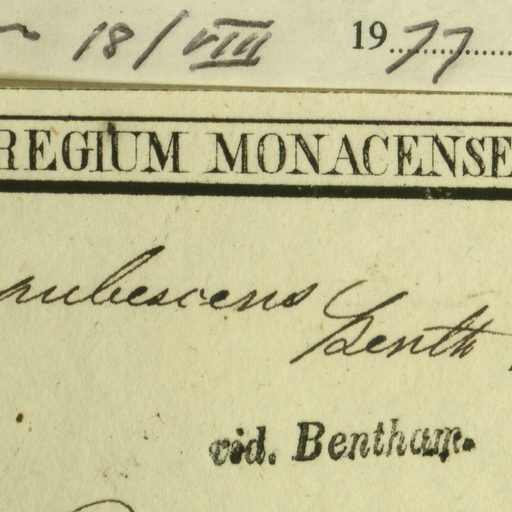 18/VIII 1977
REGIUM MONACENSE
pubescens Benth
vid. Bentham.